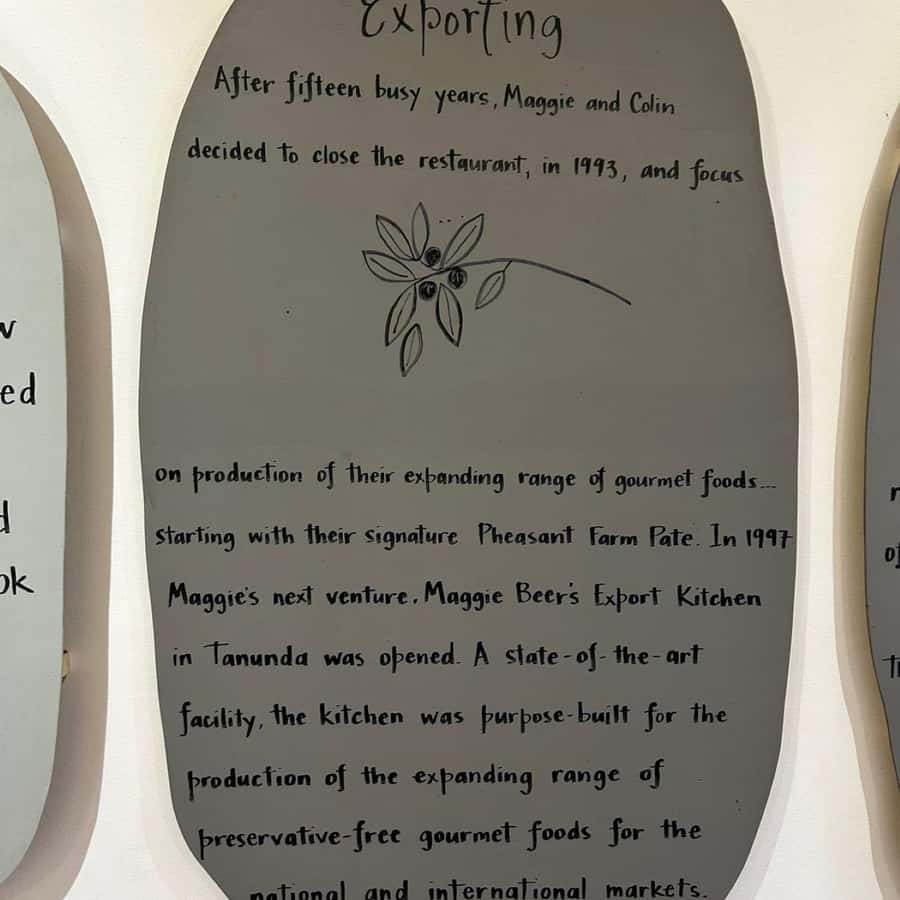 Exporting
After fifteen busy years, Maggie and Colin
decided to close the restaurant, in 1993, and focus
on production of their expanding range of gourmet foods...
starting with their signature Pheasant Farm Pate. In 1997
Maggie's next venture. Maggie Beer's Export Kitchen
in Tanunda was opened. A state-of-the-art
facility, the kitchen was purpose-built for the
production of the expanding range of
preservative-free gourmet foods for the
national and international markets.